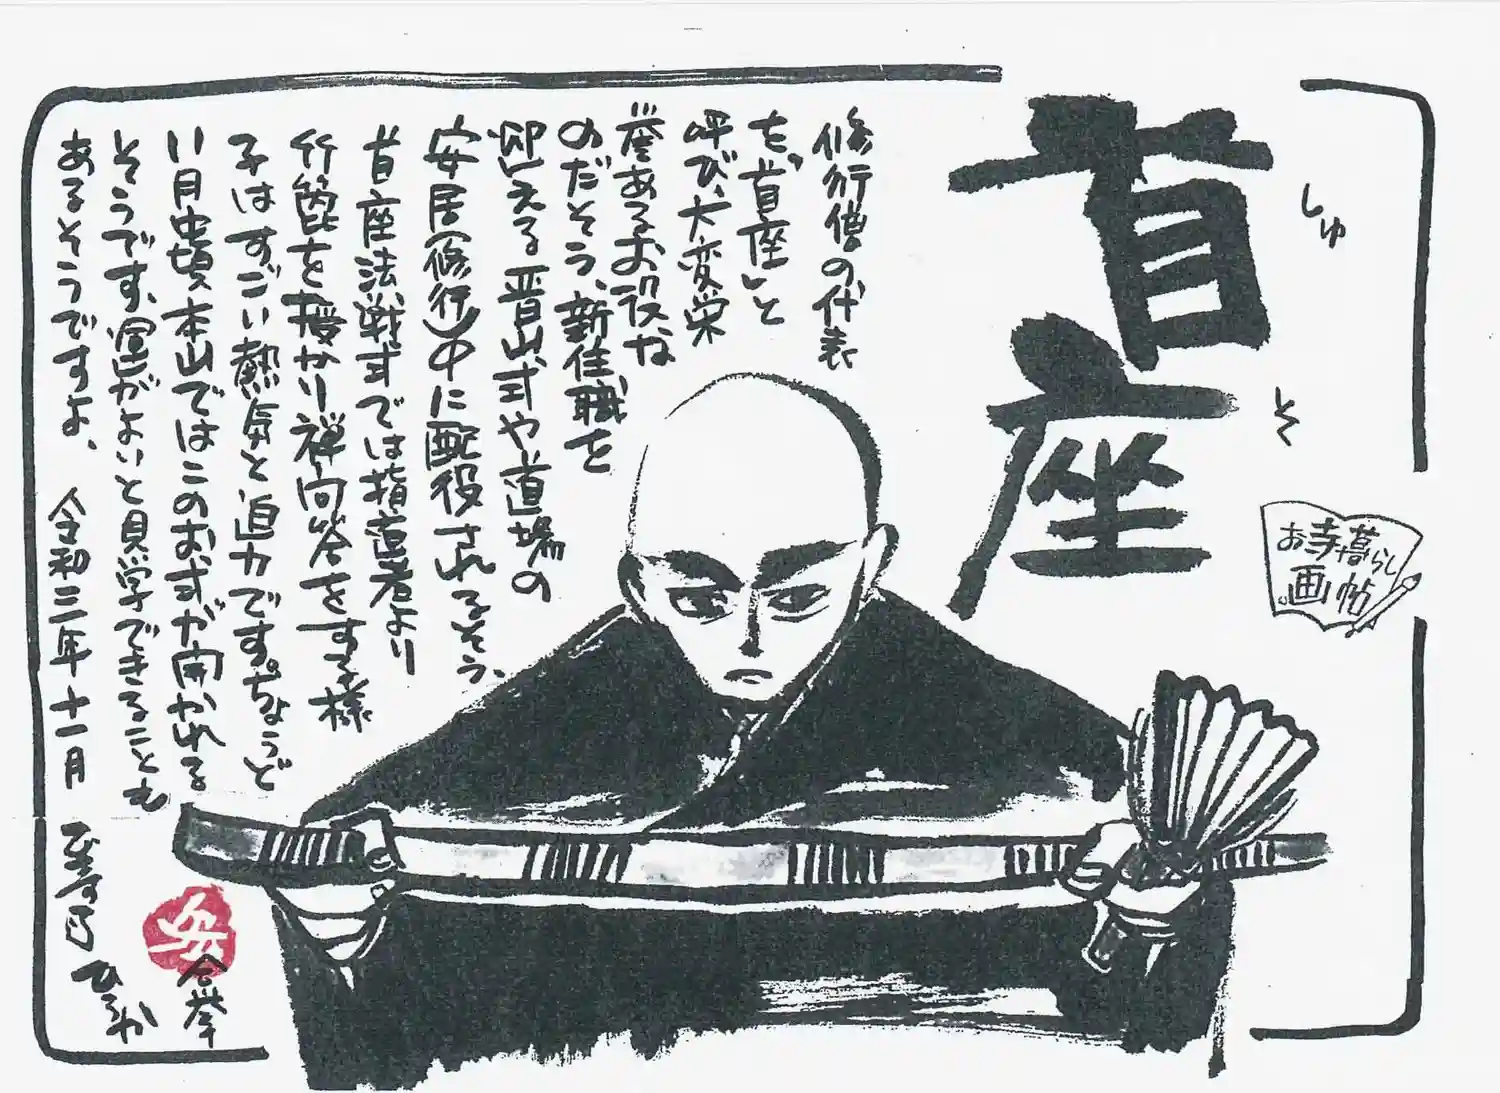 首座
しゅ
そ
お寺暮らし
画帖
修行僧の代表
を“首座”と
呼び、大変栄
誉あるお役な
のだそう、新住職を
迎える晋山式や道場の
安居(修行)中に配役されるそう、
首座法戦式では指導者より
竹篦を授かり禅問答をする様
子はすごい熱気と迫力です。ちょうど
11月中頃、本山ではこのお式が開かれる
そうです、運がよいと見学できることも
あるそうですよ、
令和三年十一月
ひろか
合掌